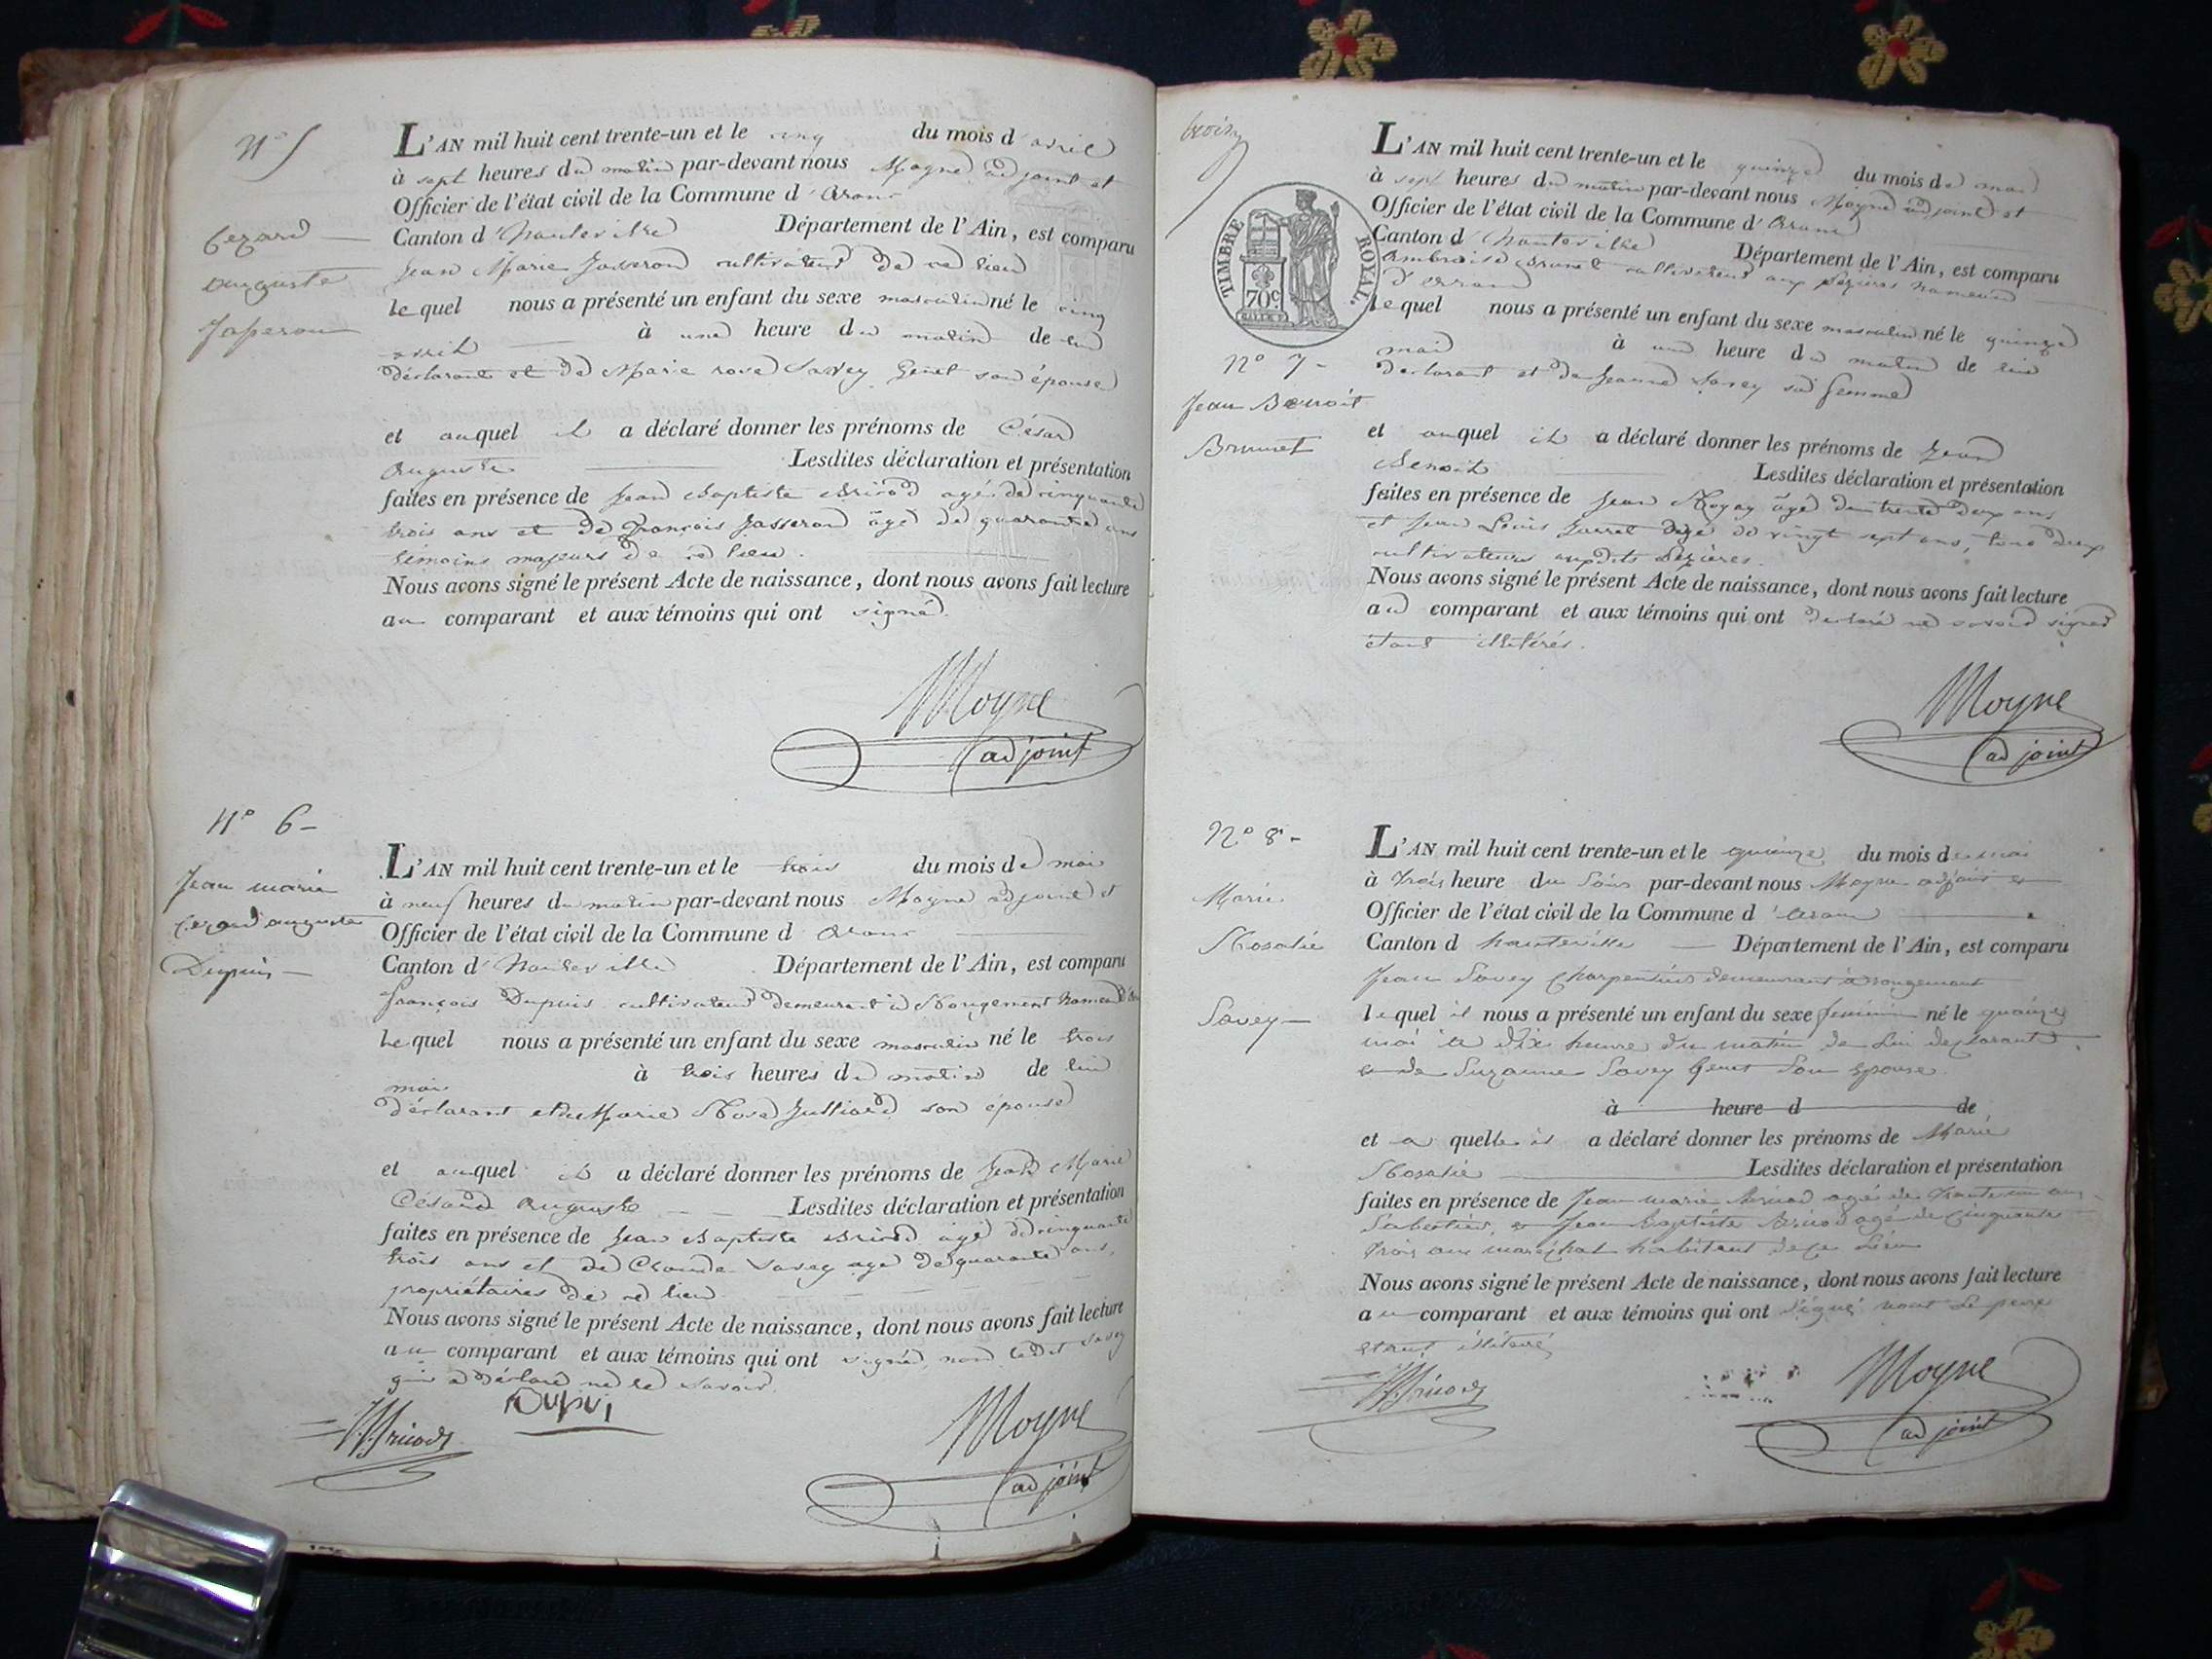 N° 5
Cezard
auguste
Jasseron
L'AN mil huit cent trente-un et le cinq du mois d'avril
à sept heures du matin par-devant nous Moyne adjoint et
Officier de l'état civil de la Commune d'Aranc
Canton d'hauteville Département de l'Ain, est comparu
Jean Marie Jasseron cultivateur de ce lieu
lequel nous a présenté un enfant du sexe masculin né le cinq
avril à une heure du matin de lui
déclarant et de Marie rose Savey Genet son épouse
et auquel il a déclaré donner les prénoms de César
Auguste Lesdites déclaration et présentation
faites en présence de Jean Baptiste Bricod agé de cinquante
trois ans et de François Jasseron âgé de quarante ans
témoins majeurs de ce lieu.
Nous avons signé le présent Acte de naissance, dont nous avons fait lecture
au comparant et aux témoins qui ont signé.
Moyne
adjoint
N° 6-
Jean marie
Cezard auguste
Dupuis
L'AN mil huit cent trente-un et le trois du mois de mai
à neuf heures du matin par-devant nous Moyne adjoint et
Officier de l'état civil de la Commune d Aranc
Canton d'hauteville Département de l'Ain, est comparu
françois Dupuis cultivateur demeurant à Rougemont hameau
lequel nous a présenté un enfant du sexe masculin né le trois
mai à trois heures du matin de lui
déclarant et de Marie Rose Julliard son épouse
et auquel il a déclaré donner les prénoms de Jean Marie
César Auguste Lesdites déclaration et présentation
faites en présence de Jean Baptiste Bricod âgé de cinquante
trois ans et de Claude Savey agé de quarante ans,
propriétaires de ce lieu
Nous avons signé le présent Acte de naissance, dont nous avons fait lecture
au comparant et aux témoins qui ont signé, non ledit Savey
qui a déclaré ne le savoir.
Dupui
Bricod
Moyne
adjoint
TIMBRE ROYAL.
70c.
N° 7-
Jean Benoit
Brunet
L'AN mil huit cent trente-un et le quinze du mois de mai
à sept heures du matin par-devant nous Moyne adjoint et
Officier de l'état civil de la Commune d'Aranc
Canton d'hauteville Département de l'Ain, est comparu
Ambroise Brunet cultivateur aux Pézières hameau
d'Aranc
lequel nous a présenté un enfant du sexe masculin né le quinze
mai à une heure du matin de lui
déclarant et de Jeanne Savey sa femme
et auquel il a déclaré donner les prénoms de Jean
Benoit Lesdites déclaration et présentation
faites en présence de Jean âgé de trente deux ans
et Jean Louis agé de vingt sept ans, tous deux
cultivateurs auxdits Pézières.
Nous avons signé le présent Acte de naissance, dont nous avons fait lecture
au comparant et aux témoins qui ont déclaré ne savoir signer
étant illitérés.
Moyne
adjoint
N° 8-
Marie
Rosalie
Savey
L'AN mil huit cent trente-un et le quinze du mois de mai
à trois heure du soir par-devant nous Moyne adjoint et
Officier de l'état civil de la Commune d'Aranc
Canton d hauteville Département de l'Ain, est comparu
Jean Savey Charpentier demeurant à rougemont
lequel il nous a présenté un enfant du sexe féminin né le quinze
mai à dix heure du matin de lui déclarant
et de Suzanne Savey Genet son épouse
à heure d de
et a quelle il a déclaré donner les prénoms de Marie
Rosalie Lesdites déclaration et présentation
faites en présence de Jean marie Bricod agé de trente un ans
Sabotier, et Jean Baptiste Bricod agé de cinquante
trois ans maréchal habitant de ce lieu
Nous avons signé le présent Acte de naissance, dont nous avons fait lecture
au comparant et aux témoins qui ont signé non le pere
etant illiteré
Bricod
Moyne
adjoint